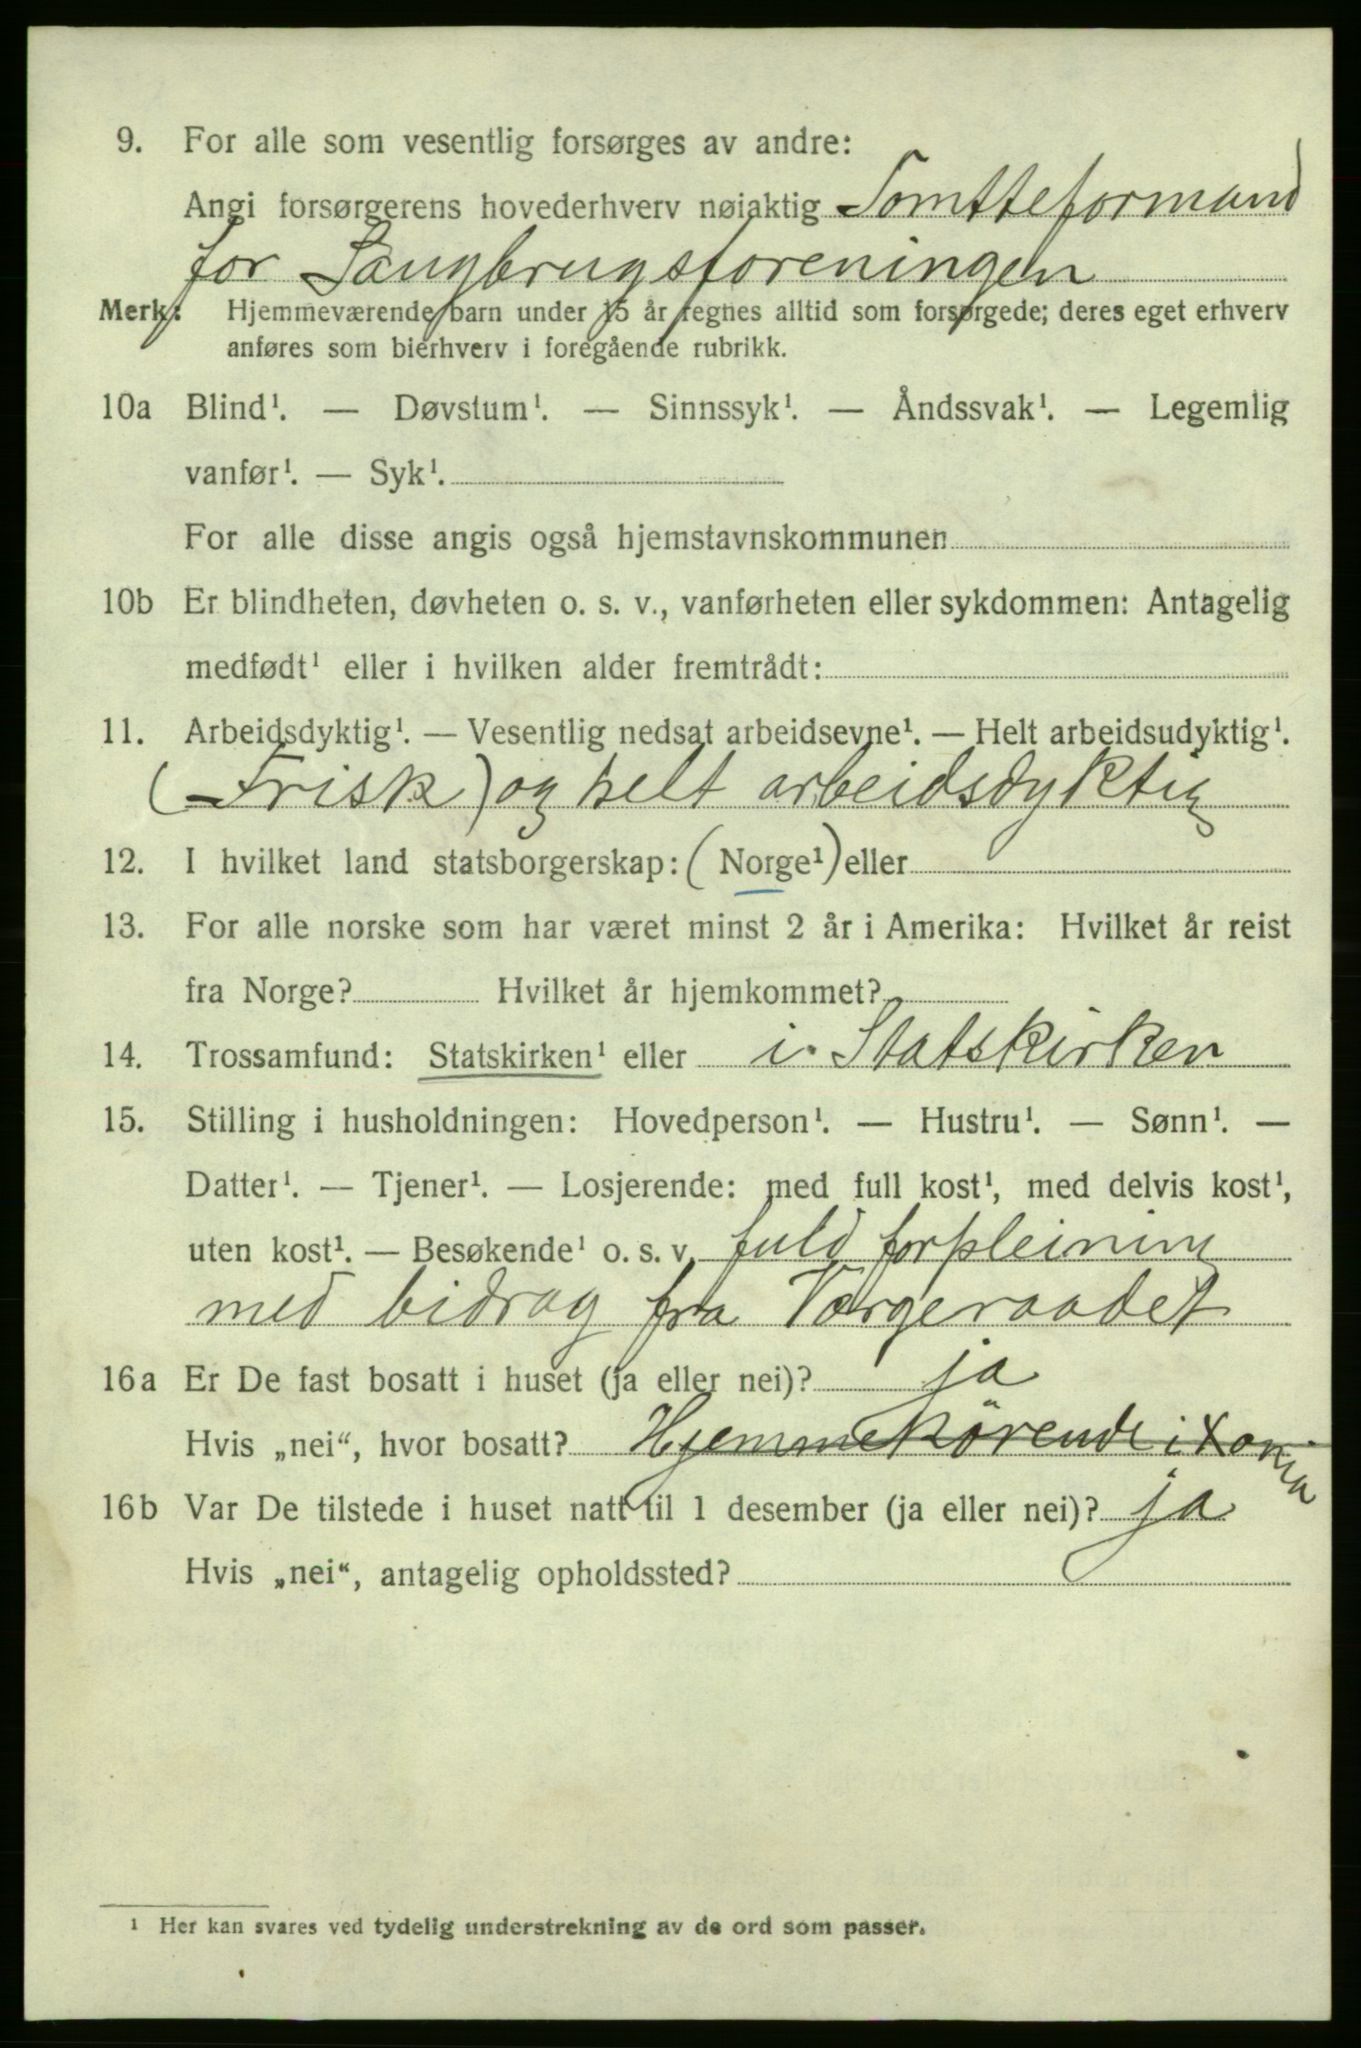 9. For alle som vesentlig forsørges av andre:
Angi forsørgerens hovederhverv nøiaktig Tomtteformand
for Saugbrugsforeningen
Merk: Hjemmeværende barn under 15 år regnes alltid som forsørgede; deres eget erhverv
anføres som bierhverv i foregående rubrikk.
10a Blind¹. — Døvstum¹. — Sinnssyk¹. — Åndssvak¹. — Legemlig
vanfør¹. — Syk¹.
For alle disse angis også hjemstavnskommunen
10b Er blindheten, døvheten o. s. v., vanførheten eller sykdommen: Antagelig
medfødt¹ eller i hvilken alder fremtrådt:
11. Arbeidsdyktig¹. — Vesentlig nedsat arbeidsevne¹. — Helt arbeidsudyktig¹.
(Frisk) og helt arbeidsdyktig
12. I hvilket land statsborgerskap: (Norge¹) eller
13. For alle norske som har været minst 2 år i Amerika: Hvilket år reist
fra Norge? Hvilket år hjemkommet?
14. Trossamfund: Statskirken¹ eller i. Statskirken
15. Stilling i husholdningen: Hovedperson¹. — Hustru¹. — Sønn¹. —
Datter¹. — Tjener¹. — Losjerende: med full kost¹, med delvis kost¹,
uten kost¹. — Besøkende¹ o. s. v. fuld forpleining
med bidrag fra Værgeraadet
16a Er De fast bosatt i huset (ja eller nei)? ja
Hvis „nei“, hvor bosatt? Hjemmehörende i Xania
16b Var De tilstede i huset natt til 1 desember (ja eller nei)? ja
Hvis „nei“, antagelig opholdssted?
¹ Her kan svares ved tydelig understrekning av de ord som passer.